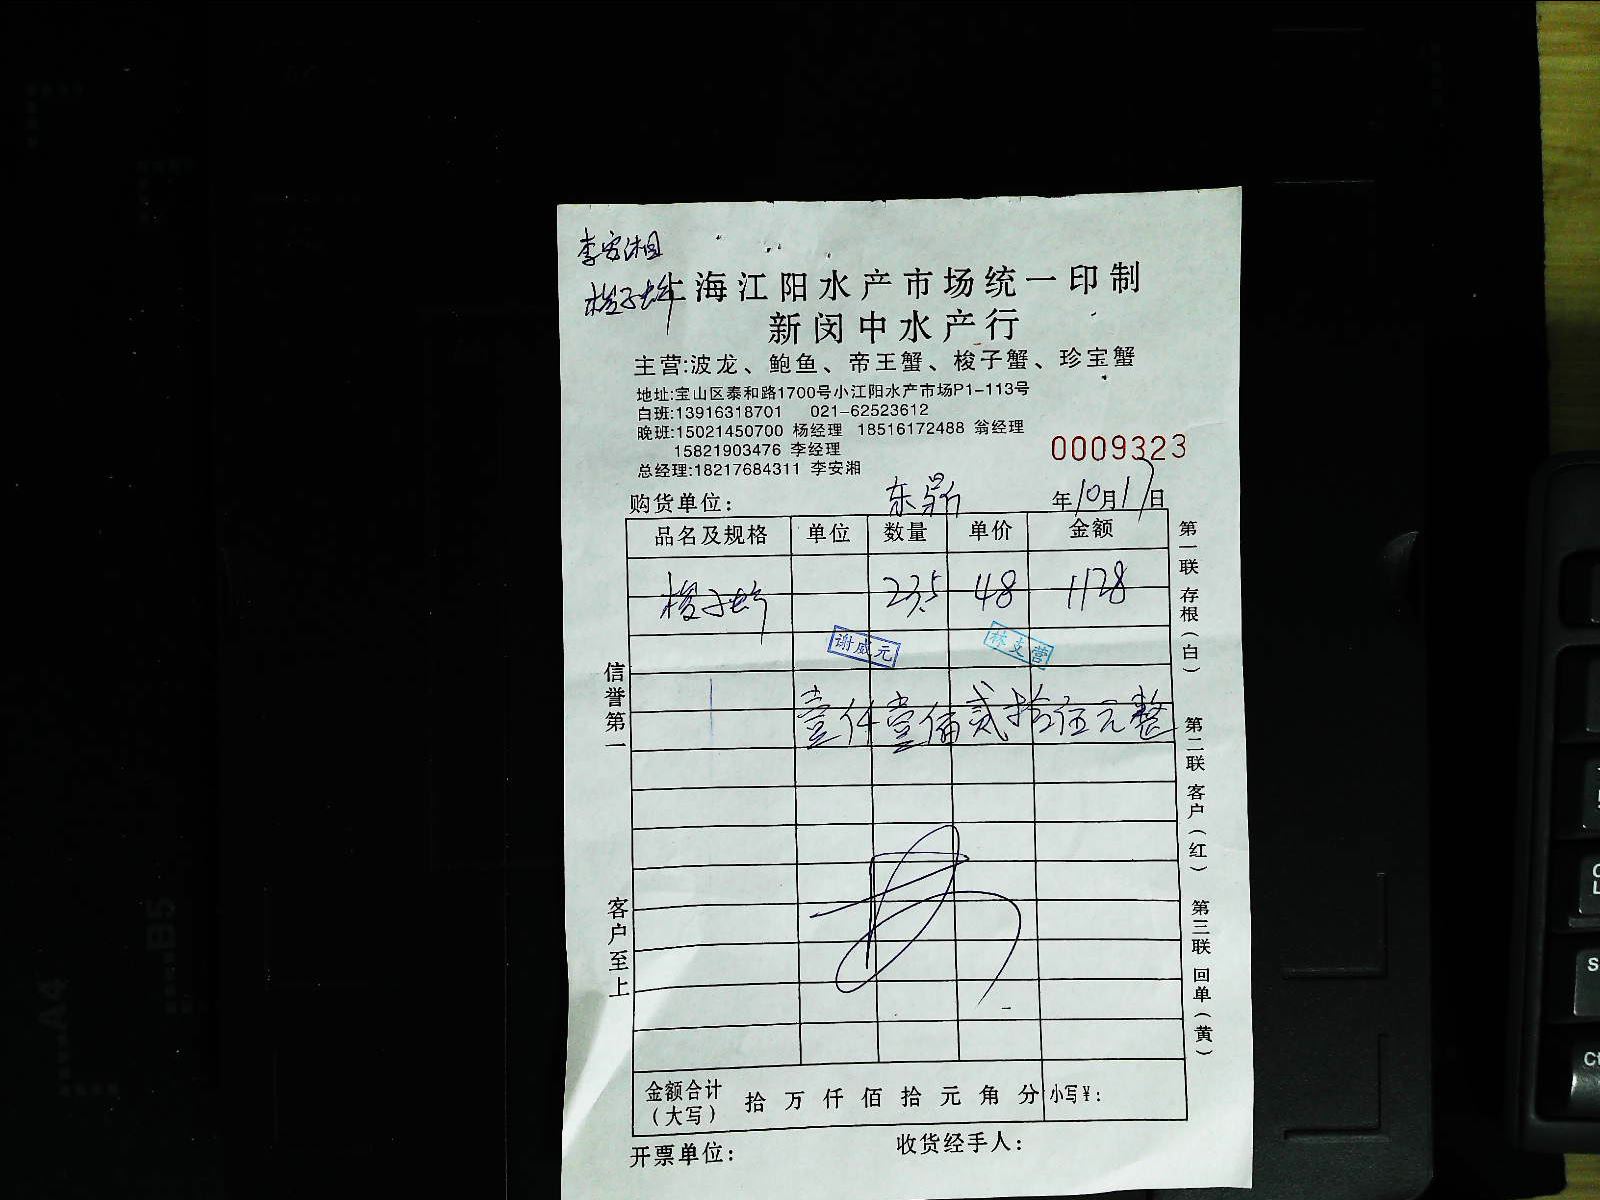 李安湘
梭子蟹
上海江阳水产市场统一印制
新闵中水产行
主营:波龙、鲍鱼、帝王蟹、梭子蟹、珍宝蟹
地址:宝山区泰和路1700号小江阳水产市场P1-113号
白班:13916318701 021-62523612
晚班:15021450700 杨经理 18516172488 翁经理
15821903476 李经理
总经理:18217684311 李安湘
0009323
购货单位: 东昴 年10月17日
品名及规格 单位 数量 单价 金额
梭子蟹 23.5 48 1128
谢威元 林支营
壹仟壹佰贰拾伍元整
金额合计(大写) 拾 万 仟 佰 拾 元 角 分 小写¥:
开票单位: 收货经手人:
信誉第一 客户至上
第一联 存根(白) 第二联 客户(红) 第三联 回单(黄)
A4
B5